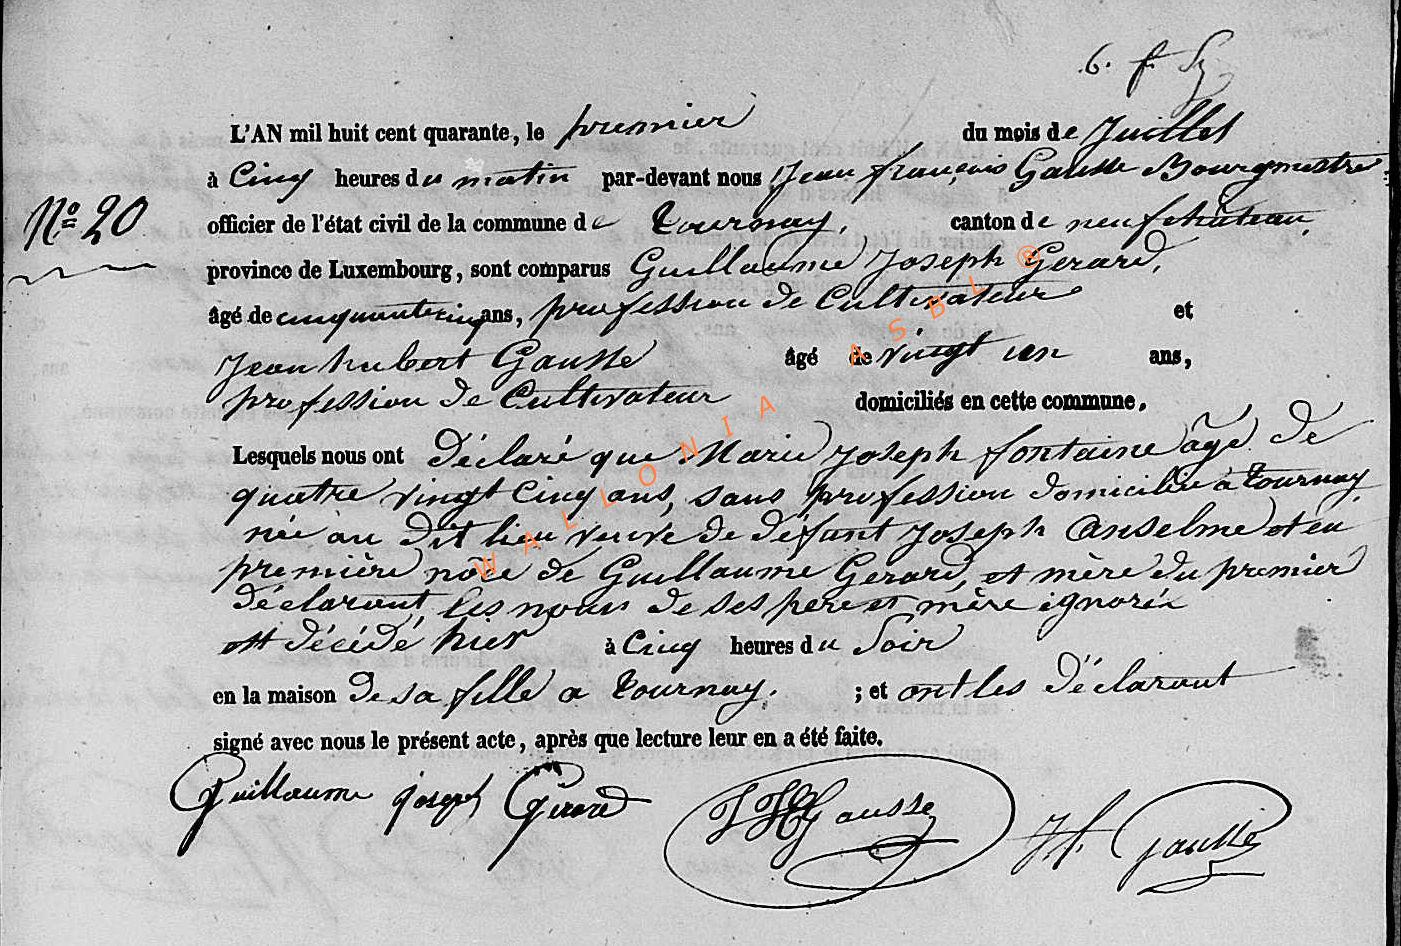 6. f.
L'AN mil huit cent quarante, le premier du mois de Juillet
à Cinq heures du matin par-devant nous Jean françois Gausse Bourgmestre
N° 20
officier de l'état civil de la commune de Tournay, canton de neufchâteau,
province de Luxembourg, sont comparus Guillaume Joseph Gerard,
âgé de cinquante cinq ans, profession de Cultivateur et
Jean hubert Gausse âgé de vingt un ans,
profession de Cultivateur domiciliés en cette commune.
Lesquels nous ont déclaré que Marie Joseph fontaine âgé de
quatre vingt Cinq ans, sans profession domiciliée à Tournay
née au dit lieu veuve de défunt Joseph Anselme et en
première nôce de Guillaume Gerard, et mère du premier
déclarant, les noms de ses pere et mère ignorés
est décédé hier à Cinq heures du Soir
en la maison de sa fille a Tournay, ; et ont les déclarant
signé avec nous le présent acte, après que lecture leur en a été faite.
Guillaume joseph Gerard JH Gausse J.f. Gausse
WALLONIA ASBL ®